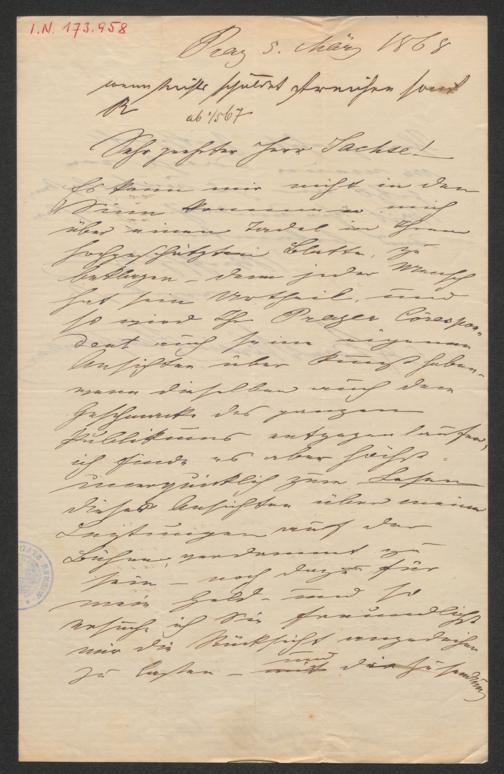 I.N. 173.958
Prag 5. März 1868
wenn nichts schuldet streichen sonst
ab 1/5 67
Sehr geehrter Herr Sachse!
Es kann mir nicht in den
Sinn kommen mich
über einen Tadel in Ihrem
hochgeschätzten Blatte, zu
beklagen – denn jeder Mensch
hat sein Urtheil, und
so wird Ihr Prager Corespon-
dent auch seine eigenen
Ansichten über Kunst haben,
wenn dieselben auch dem
Geschmacke des ganzen
Publikums entgegen laufen,
ich finde es aber höchst
unerquicklich zum Lesen
dieser Ansichten über meine
Leistungen auf der
Bühne, verdammt zu
sein – noch dazu für
mein Geld – und so
ersuche ich Sie freundlichst
mir die Rücksicht angedeihen
zu lassen – und die Zusendung